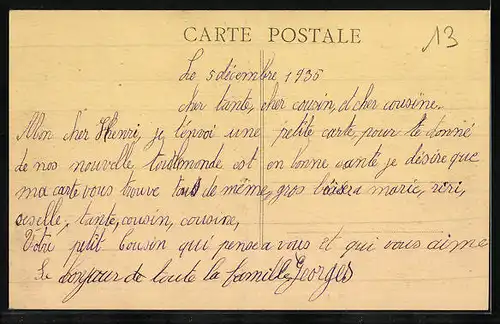 CARTE POSTALE
13
Le 5 décembre 1935
cher tante, cher cousin, et cher cousine.
Mon cher Henri, je t'envoi une petite carte pour te donné
de nos nouvelle, tout le monde est en bonne sante je désire que
ma carte vous trouve tous de même, gros baiser a marie, riri,
giselle, tante, cousin, cousine,
Votre petit Cousin qui pense a vous et qui vous aime
Le bonjour de toute la famille Georges